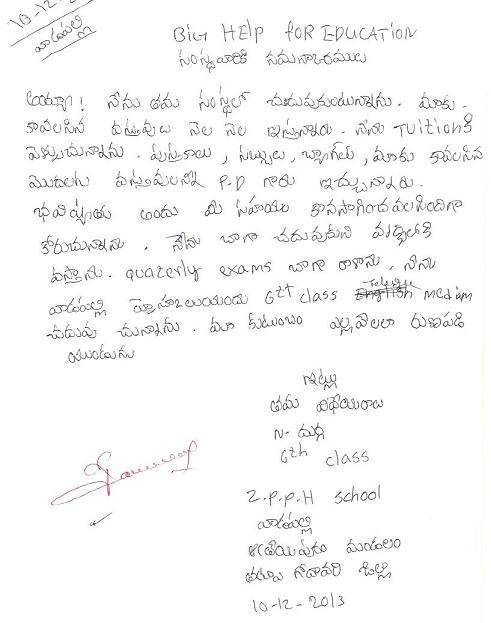 10-12-
వాడపల్లి
BIG HELP for EDUCATION
సంస్థవారికి నమస్కారములు
అయ్యా! నేను తమ సంస్థలో చదువుకుంటున్నాను. మాకు
కావలసిన వస్తువులు నెల నెల ఇస్తున్నారు. నేను Tuitionకి
వెళ్ళుచున్నాను. పుస్తకాలు, సబ్బులు, బ్యాగ్‌లు, మాకు కావలసిన
మొదలగు వస్తువులన్ని P.D గారు ఇచ్చుచున్నారు.
భవిష్యత్తు అందు మీ సహాయం కొనసాగించవలసిందిగా
కోరుచున్నాను. నేను బాగా చదువుకుని వృద్ధిలోకి
వస్తాను. quaterly exams బాగా రాశాను. నేను
వాడపల్లి 6th class Telugu medium
చదువు చున్నాను. మా కుటుంబం ఎల్లవేలలా రుణపడి
యుంటుంది
ఇట్లు
తమ విధేయురాలు
N. దుర్గ
6th class
Z.P.P.H school
వాడపల్లి
ఆత్రేయపురం మండలం
తూర్పు గోదావరి జిల్లా
10-12-2013